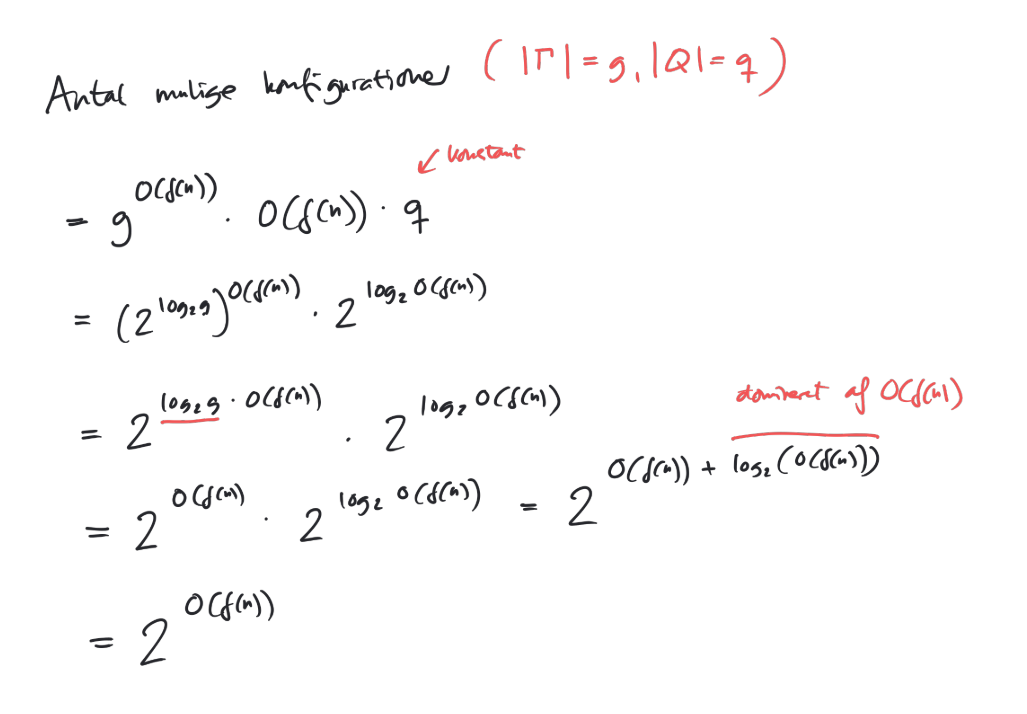 Antal mulige konfigurationer ( |Γ| = g, |Q| = q )
↙ konstant
= g^{O(f(n))} · O(f(n)) · q
= (2^{log₂g})^{O(f(n))} · 2^{log₂ O(f(n))}
= 2^{log₂g · O(f(n))} · 2^{log₂ O(f(n))}
domineret af O(f(n))
= 2^{O(f(n))} · 2^{log₂ O(f(n))} = 2^{O(f(n)) + log₂(O(f(n)))}
= 2^{O(f(n))}